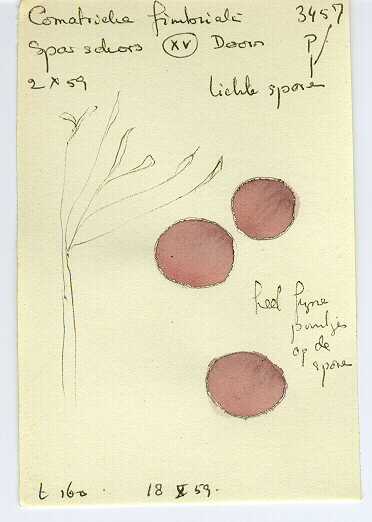 Comatricha fimbriata 3457
Spar schors XV Doorn P
2 X 59 lichte sporen
heel fyne
puntjes
op de
sporen
t 160. 18 X 59.